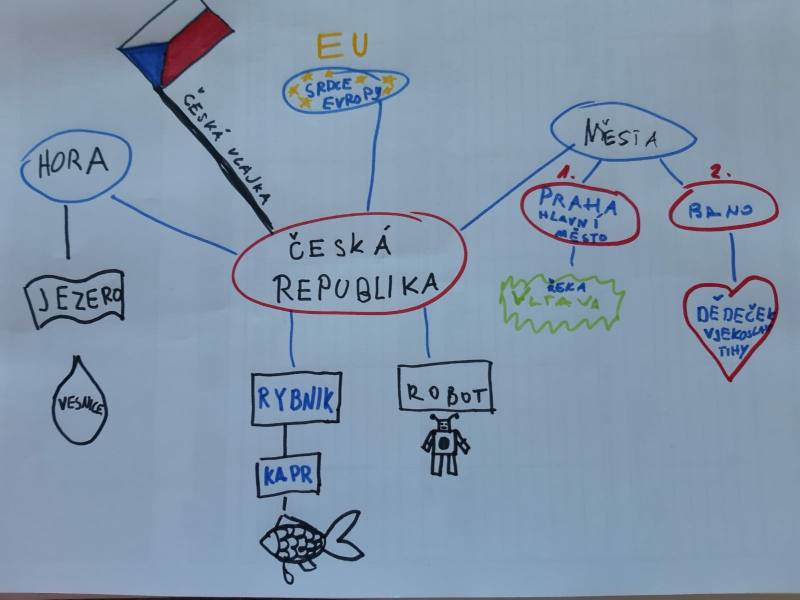 EU
SRDCE
EVROPY
ČESKÁ VLAJKA
HORA
MĚSTA
1.
2.
PRAHA
HLAVNÍ
MĚSTO
BRNO
ČESKÁ
REPUBLIKA
JEZERO
ŘEKA
VLTAVA
DĚDEČEK
VJEKOSLAV
TIHY
VESNICE
RYBNIK
ROBOT
KAPR